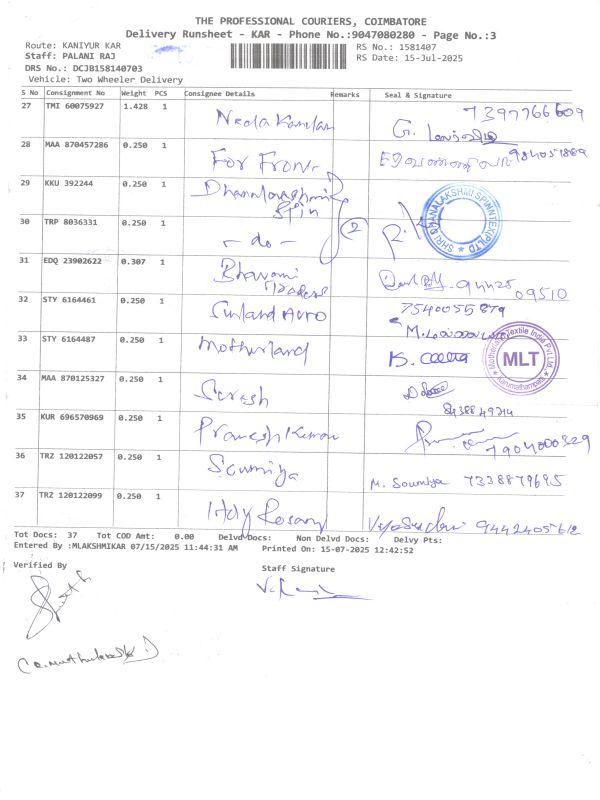 THE PROFESSIONAL COURIERS, COIMBATORE
Delivery Runsheet - KAR - Phone No.:9047080280 - Page No.:3
Route: KANIYUR KAR RS No.: 1581407
Staff: PALANI RAJ RS Date: 15-Jul-2025
DRS No.: DCJB158140703
Vehicle: Two Wheeler Delivery
S No Consignment No Weight PCS Consignee Details Remarks Seal & Signature
27 TMI 60075927 1.428 1 7397766609
28 MAA 870457286 0.250 1 For Front
29 KKU 392244 0.250 1 Dhanalakshmi
Spin
SHRI DHANALAKSHMI SPINNTEX (P) LTD
30 TRP 8036331 0.250 1 - do - 2
31 EDQ 23902622 0.307 1 Bhavani
Traders 94425 09510
32 STY 6164461 0.250 1 Sunland Auto 7540055879
33 STY 6164487 0.250 1 Motherland
Motherland Textile India Pvt Ltd.
MLT
Karumathampatti
34 MAA 870125327 0.250 1 Suresh
35 KUR 696570969 0.250 1 7904000329
36 TRZ 120122057 0.250 1 Soumiya M. Soumiya 7338879695
37 TRZ 120122099 0.250 1 Holy Rosary 9442405612
Tot Docs: 37 Tot COD Amt: 0.00 Delvd Docs: Non Delvd Docs: Delvy Pts:
Entered By :MLAKSHMIKAR 07/15/2025 11:44:31 AM Printed On: 15-07-2025 12:42:52
Verified By Staff Signature